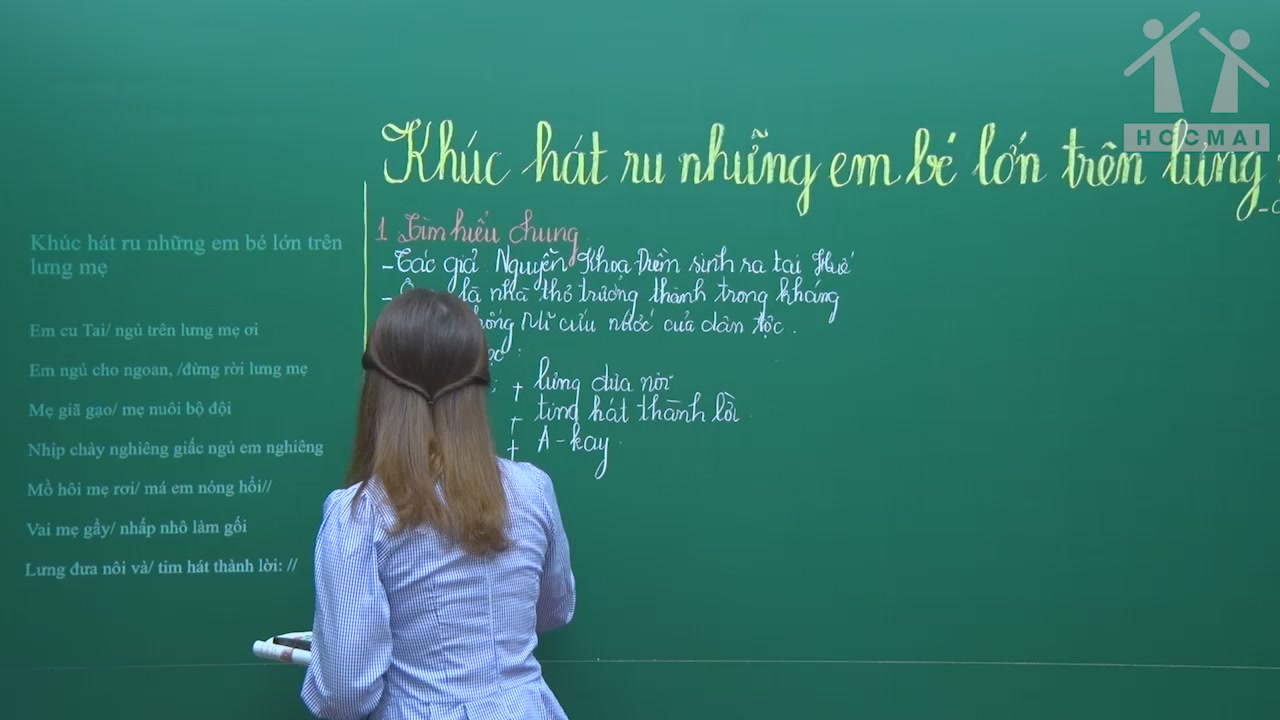 HOCMAI
Khúc hát ru những em bé lớn trên lưng
1 Tìm hiểu chung
- Tác giả Nguyễn Khoa Điềm sinh ra tại Huế
- là nhà thơ trưởng thành trong kháng
Mĩ cứu nước của dân tộc.
+ lưng đưa nôi
+ tim hát thành lời
+ A-kay.
Khúc hát ru những em bé lớn trên
lưng mẹ
Em cu Tai/ ngủ trên lưng mẹ ơi
Em ngủ cho ngoan, /đừng rời lưng mẹ
Mẹ giã gạo/ mẹ nuôi bộ đội
Nhịp chày nghiêng giấc ngủ em nghiêng
Mồ hôi mẹ rơi/ má em nóng hổi//
Vai mẹ gầy/ nhấp nhô làm gối
Lưng đưa nôi và/ tim hát thành lời: //